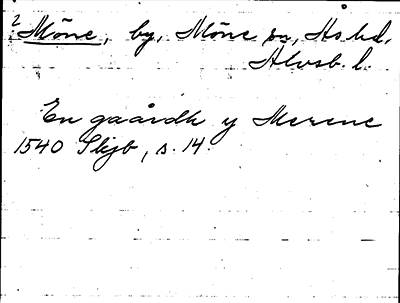 2 Möne, by, Möne sn, Ås hd,
Älvsb. l.
En gaårdh y Merene
1540 Skjb, s. 14.